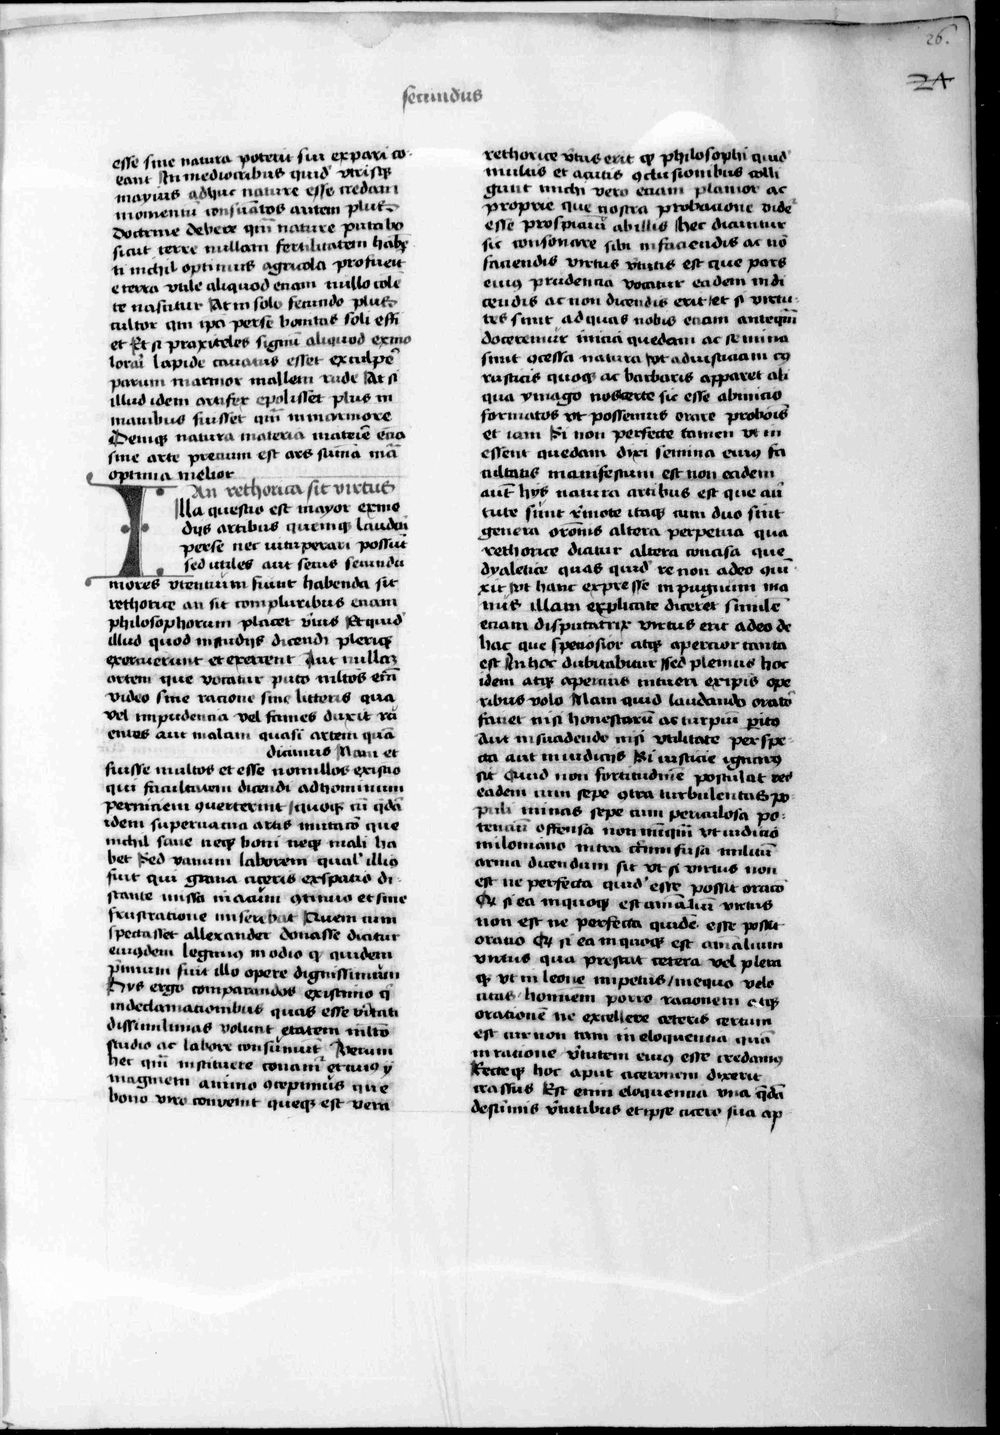 26.
24
secundus
esse sine natura poterit sin ex pari co
eant In mediocribus quid' vtrisq3
mayus adhuc nature esse credam
momentu͂ consu͂atos autem plus
doctrine debere qm͂ nature putabo
sicut terre nullam fertilitatem habe͂
ti nichil optimus agricola profuerit
e terra vtile aliquod etiam nullo cole͂
te nascitur At in solo fecundo plus
cultor qm͂ ip͂a per se bonitas soli effi
et Et si praxiteles signu͂ aliquod ex mo
lorai͂ lapide cauatus esset exculpe͂
parum marmor mallem rude At si
illud idem artifex epolisset plus in
manibus fuisset qm͂ in marmore
Deniq3 natura materia materie͂ e͂ca
sine arte precium est ars su͂ma ma͂
optima melior
An rethorica sit virtus
Illa questio est mayor ex mo
dijs artibus quemq3 laudari
per se nec vituperari possu͂t
sed vtiles aut secus secundu͂
mores vtentium fiunt habenda sit
rethorice an sit compluribus etiam
philosophorum placet v͂tus Et quid'
illud quod in studijs dicendi pleriq3
exercuerunt et exercent Aut nulla͂
artem que vocatur puto m͂ltos em͂
video sine racione sine litteris qua
vel impudencia vel fames duxit ru͂
entes aut malam quasi artem qua͂
dicimus Nam et
fuisse multos et esse nonnullos existio
qui facultatem dicendi ad hominum
perniciem 9uerterunt / quoq3 cu͂ q͂da͂
idem superuacua artis imitaco͂ que
nichil sane neq3 boni neq3 mali ha
bet Sed vanum laborem qual' illius
fuit qui grana ciceris ex spatio di
stante missa in acum 9tinuo et sine
frustratione inserebat Quem cum
spectasset allexander donasse dicitur
eiusdem leginis modio q quidem
p͂mium fuit illo opere dignissimum
Hys ergo comparandos existimo q͂
in declamacionibus quas esse v͂itati
dissimilimas volunt etatem m͂lto
studio ac labore consu͂mu͂t Verum
hec qm͂ instituere conam͂ et cuius y
maginem animo 9cepimus que
bono viro conuenit queq3 est vera
rethorice v͂tus erit q3 philosophi quid'
multis et acutis 9clusionibus colli
gunt michi vero etiam planior ac
proprie que nostra probacione vide͂
esse prospicui͂ ab illis Hec dicuntur
sic consonare sibi in faciendis ac no͂
faciendis virtus v͂tutis est que pars
eius prudencia vocatur eadem in di
cendis ac non dicendis erit / et si virtu
tes sunt ad quas nobis etiam anteqm͂
doceremur inicia quedam ac semina
sunt 9cessa natura vt ad iusticiam cu9
rusticis quoq3 ac barbaris apparet ali
qua ymago nos certe sic esse ab inicio
formatos vt possemus orare pro bois͂
et iam Si non perfecte tamen vt in
essent quedam dixi semina eius fa
cultatis manifestum est non eadem
aut͂ hys natura artibus est que au͂
tute sunt r͂mote itaq3 cum duo sint
genera oro͂nis altera perpetua qua
rethorice dicitur altera concisa que
dyaletice quas quid' re non adeo 9iu͂
xit vt hanc expresse in pugnum ma
nus illam explicate diceret simile͂
etiam disputatrix virtus erit adeo de
hac que speciosior atq3 apercior tanta
est An hoc dubitabitur Sed plenius hoc
idem atq3 apercius intueri ex ipis͂ ope
ribus volo Nam quid laudando orato͂
faciet nisi honestaru͂ ac turpiu͂ p͂ito
Aut in suadendo nisi vtilitate perspe
cta aut in iudicijs Si iusticie ignarus
sit Quid non fortitudine͂ postulat res
eadem cum sepe 9tra turbulentas po
puli minas sepe cum periculosa po
tencu͂ offensa non nu͂qm͂ vt iudicio
milomano intra c͂tim fusa militu͂
arma dicendum sit vt si virtus non
est ne perfecta quid' esse possit oraco͂
Q' si ea in quoq3 est animalium virtus
non est ne perfecta quide͂ esse possit
oratio Q' si ea in quoq3 est animalium
virtus qua prestat cetera vel plera
q3 vt in leone impetus / in equo velo
citas / hominem porro racionem atq3
oratione͂ ne excellere ceteris certum
est cur non tam in eloquencia qua͂
in ratione v͂tutem eius esse credamus
Recteq3 hoc aput ciceronem dixerit
crassus Est enim eloquencia vna q͂da͂
de su͂mis v͂tutibus et ipse cicero sua ap